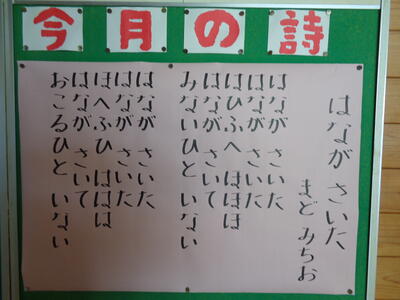 今月の詩
はなが さいた
まど みちお
はなが さいた
はなが さいた
はひふへ ほほほ
はなが さいて
みないひと いない
はなが さいた
はなが さいた
ほへふひ ははは
はなが さいて
おこるひと いない